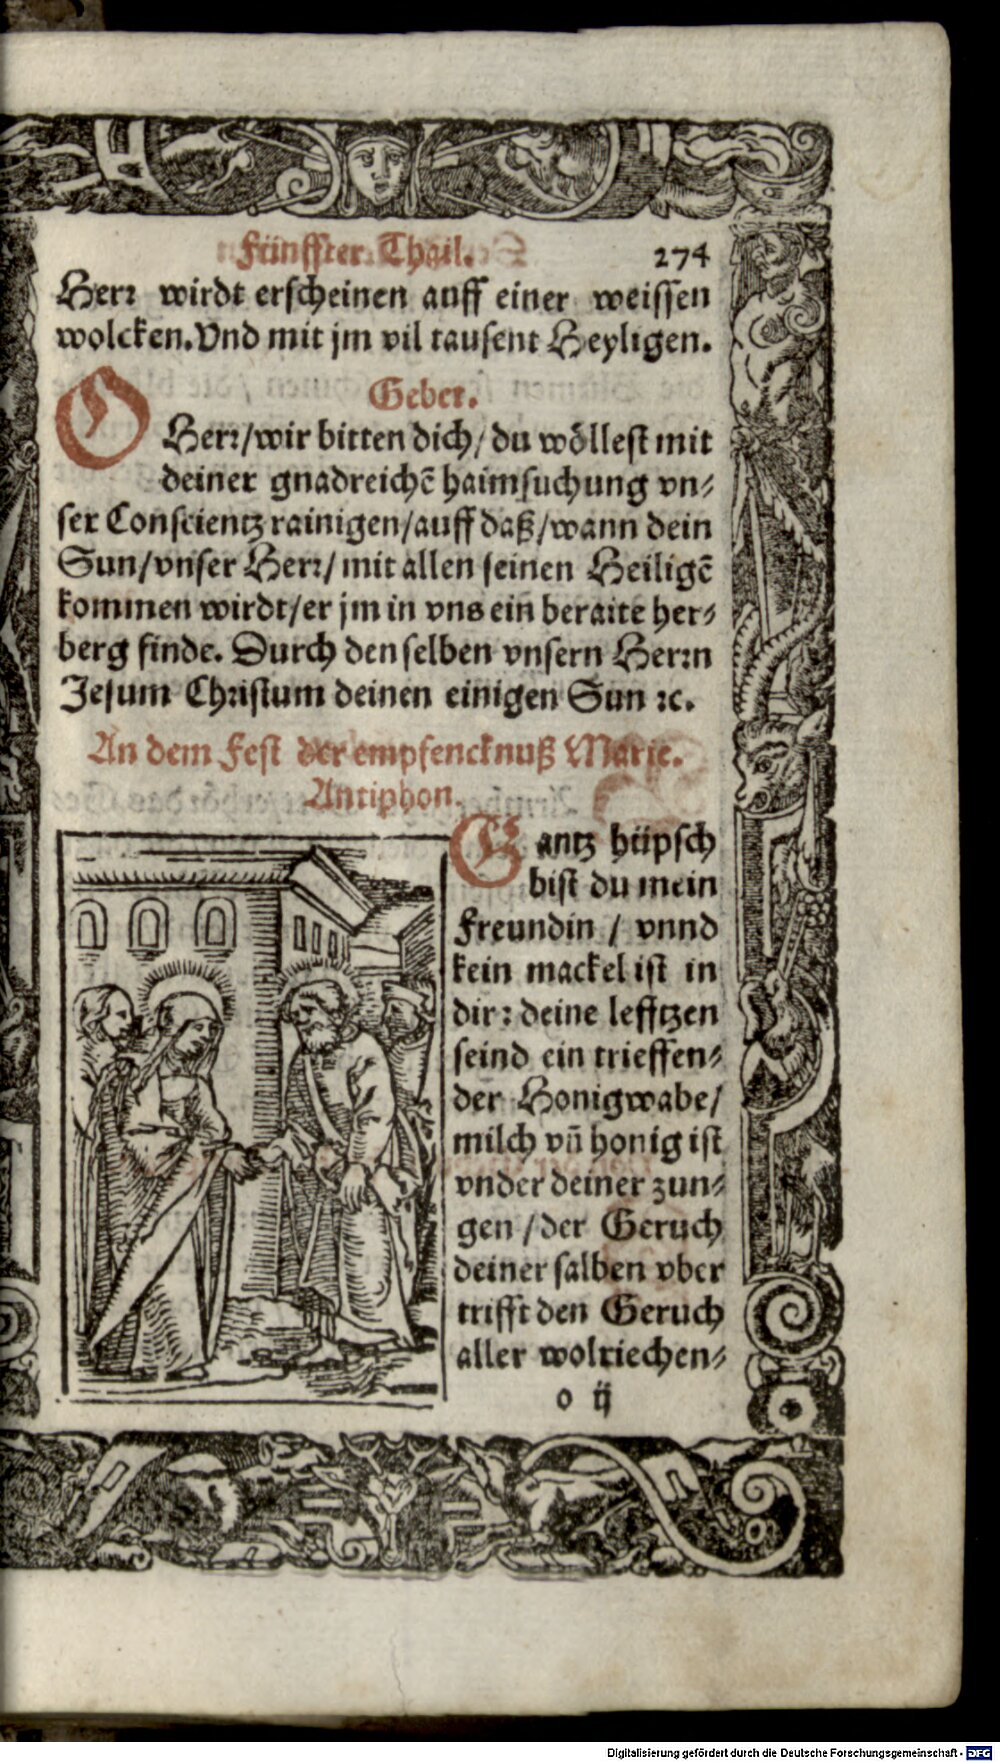 Fünffter Thail. 274
Herꝛ wirdt erscheinen auff einer weissen
wolcken. Vnd mit jm vil tausent Heyligen.
Gebet.
O Herꝛ/wir bitten dich/du wöllest mit
deiner gnadreichẽ haimsuchung vn⸗
ser Conscientz rainigen/auff daß/wann dein
Sun/vnser Herꝛ/mit allen seinen Heiligẽ
kommen wirdt/er jm in vns ein beraite her⸗
berg finde. Durch den selben vnsern Herꝛn
Jesum Christum deinen einigen Sun ꝛc.
An dem Fest der empfencknuß Marie.
Antiphon.
Gantz hüpsch
bist du mein
Freundin / vnnd
kein mackel ist in
dir: deine lefftzen
seind ein trieffen⸗
der Honigwabe/
milch vñ honig ist
vnder deiner zun⸗
gen /der Geruch
deiner salben vber
trifft den Geruch
aller wolriechen⸗
o ij
Digitalisierung gefördert durch die Deutsche Forschungsgemeinschaft - DFG